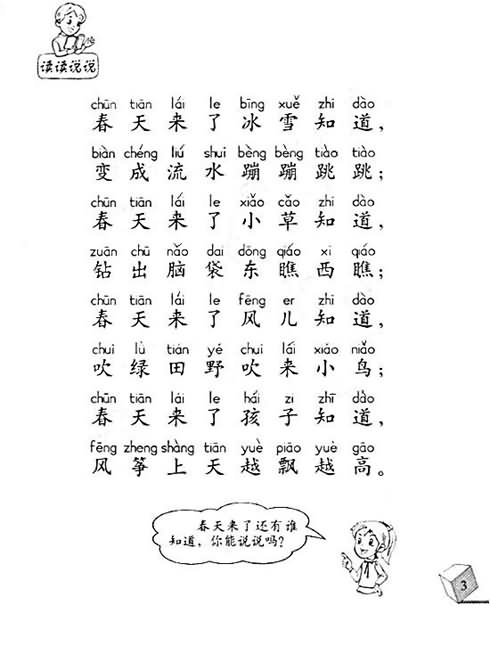 读读说说
chūn tiān lái le bīng xuě zhi dào
春天来了冰雪知道，
biàn chéng liú shuǐ bèng bèng tiào tiào
变成流水蹦蹦跳跳；
chūn tiān lái le xiǎo cǎo zhi dào
春天来了小草知道，
zuān chū nǎo dai dōng qiáo xi qiáo
钻出脑袋东瞧西瞧；
chūn tiān lái le fēng er zhi dào
春天来了风儿知道，
chui lǜ tián yě chui lái xiǎo niǎo
吹绿田野吹来小鸟；
chūn tiān lái le hái zi zhī dào
春天来了孩子知道，
fēng zheng shàng tiān yuè piāo yuè gāo
风筝上天越飘越高。
春天来了还有谁
知道，你能说说吗？
3